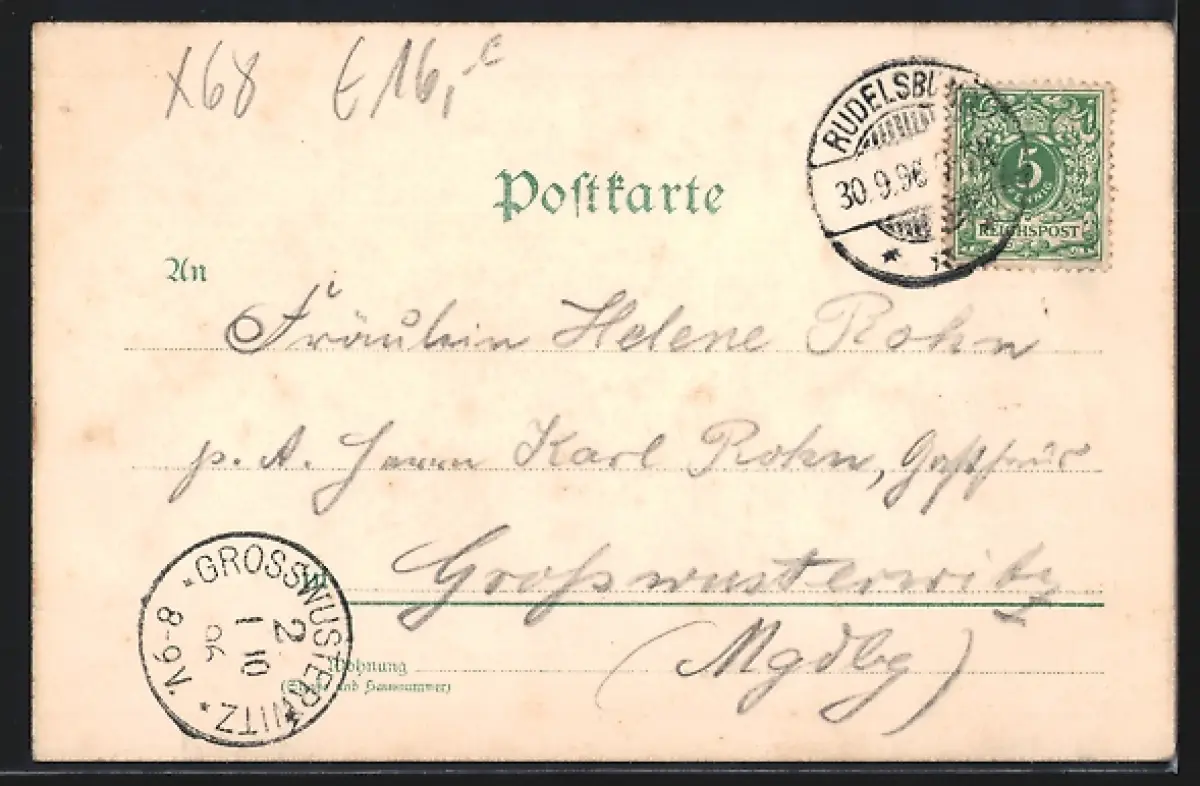 X68 E16,-
RUDELSBU
30.9.96
5
REICHSPOST
Postkarte
An
Fräulein Helene Rohn
p. A. Herrn Karl Rohn,
Großwusterwitz
(Mgdbg)
*GROSSWUSTERWITZ*
2
1 10
96
V.6-8
Wohnung
(Straße und Hausnummer)